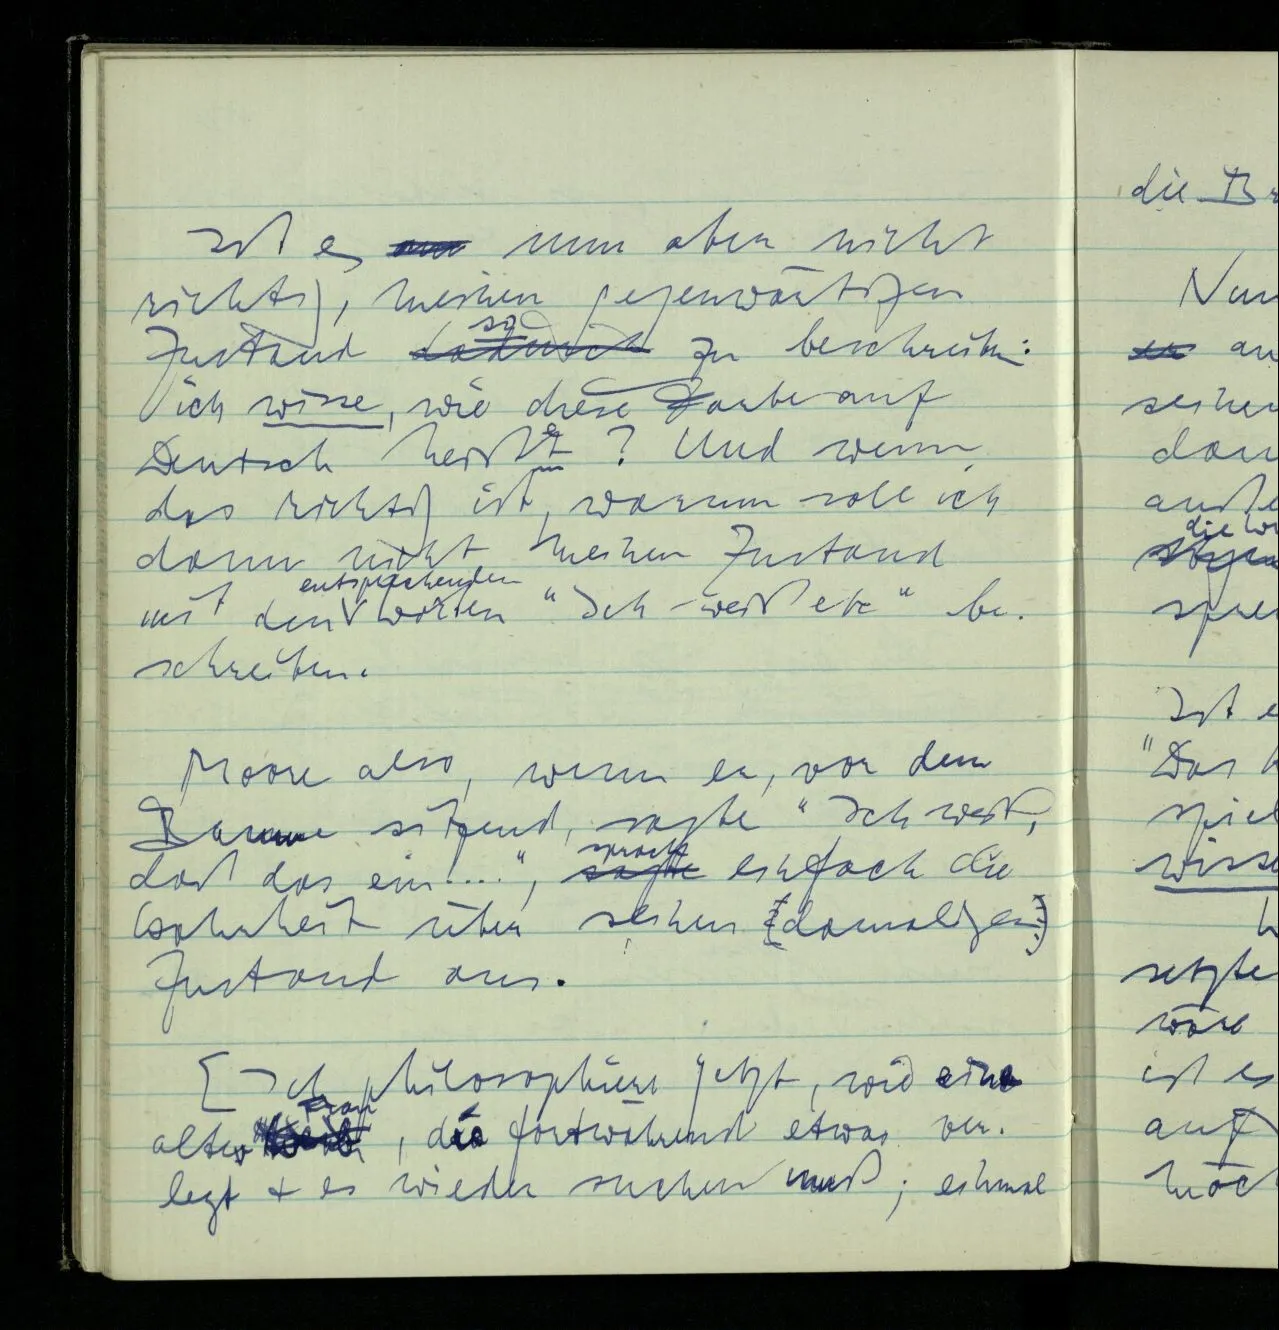 Ist es nun aber nicht
richtig, meinen gegenwärtigen
Zustand so zu beschreiben:
ich wisse, wie diese Farbe auf
Deutsch heißt? Und wenn
das richtig ist, warum soll ich
dann nicht meinen Zustand
mit den entsprechenden Worten "Ich weiß etc" be-
schreiben.
Moore also, wenn er, vor dem
Baume sitzend, sagte "Ich weiß,
daß das ein....", sprach einfach die
Wahrheit über seinen [damaligen]
Zustand aus.
[Ich philosophiere jetzt, wie eine
alte Frau, die fortwährend etwas ver-
legt + es wieder suchen muß; einmal
die
Nun
an
seinen
dann
die
Ist e
"Das
spiel
setzte
wäre
ist es
auf